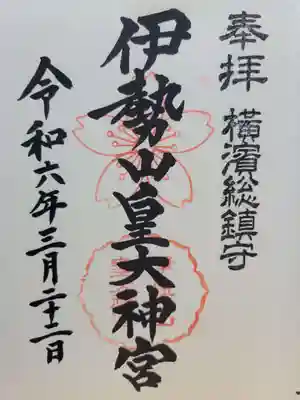 奉拝 横濱総鎮守
伊勢山皇大神宮
令和六年三月二十二日